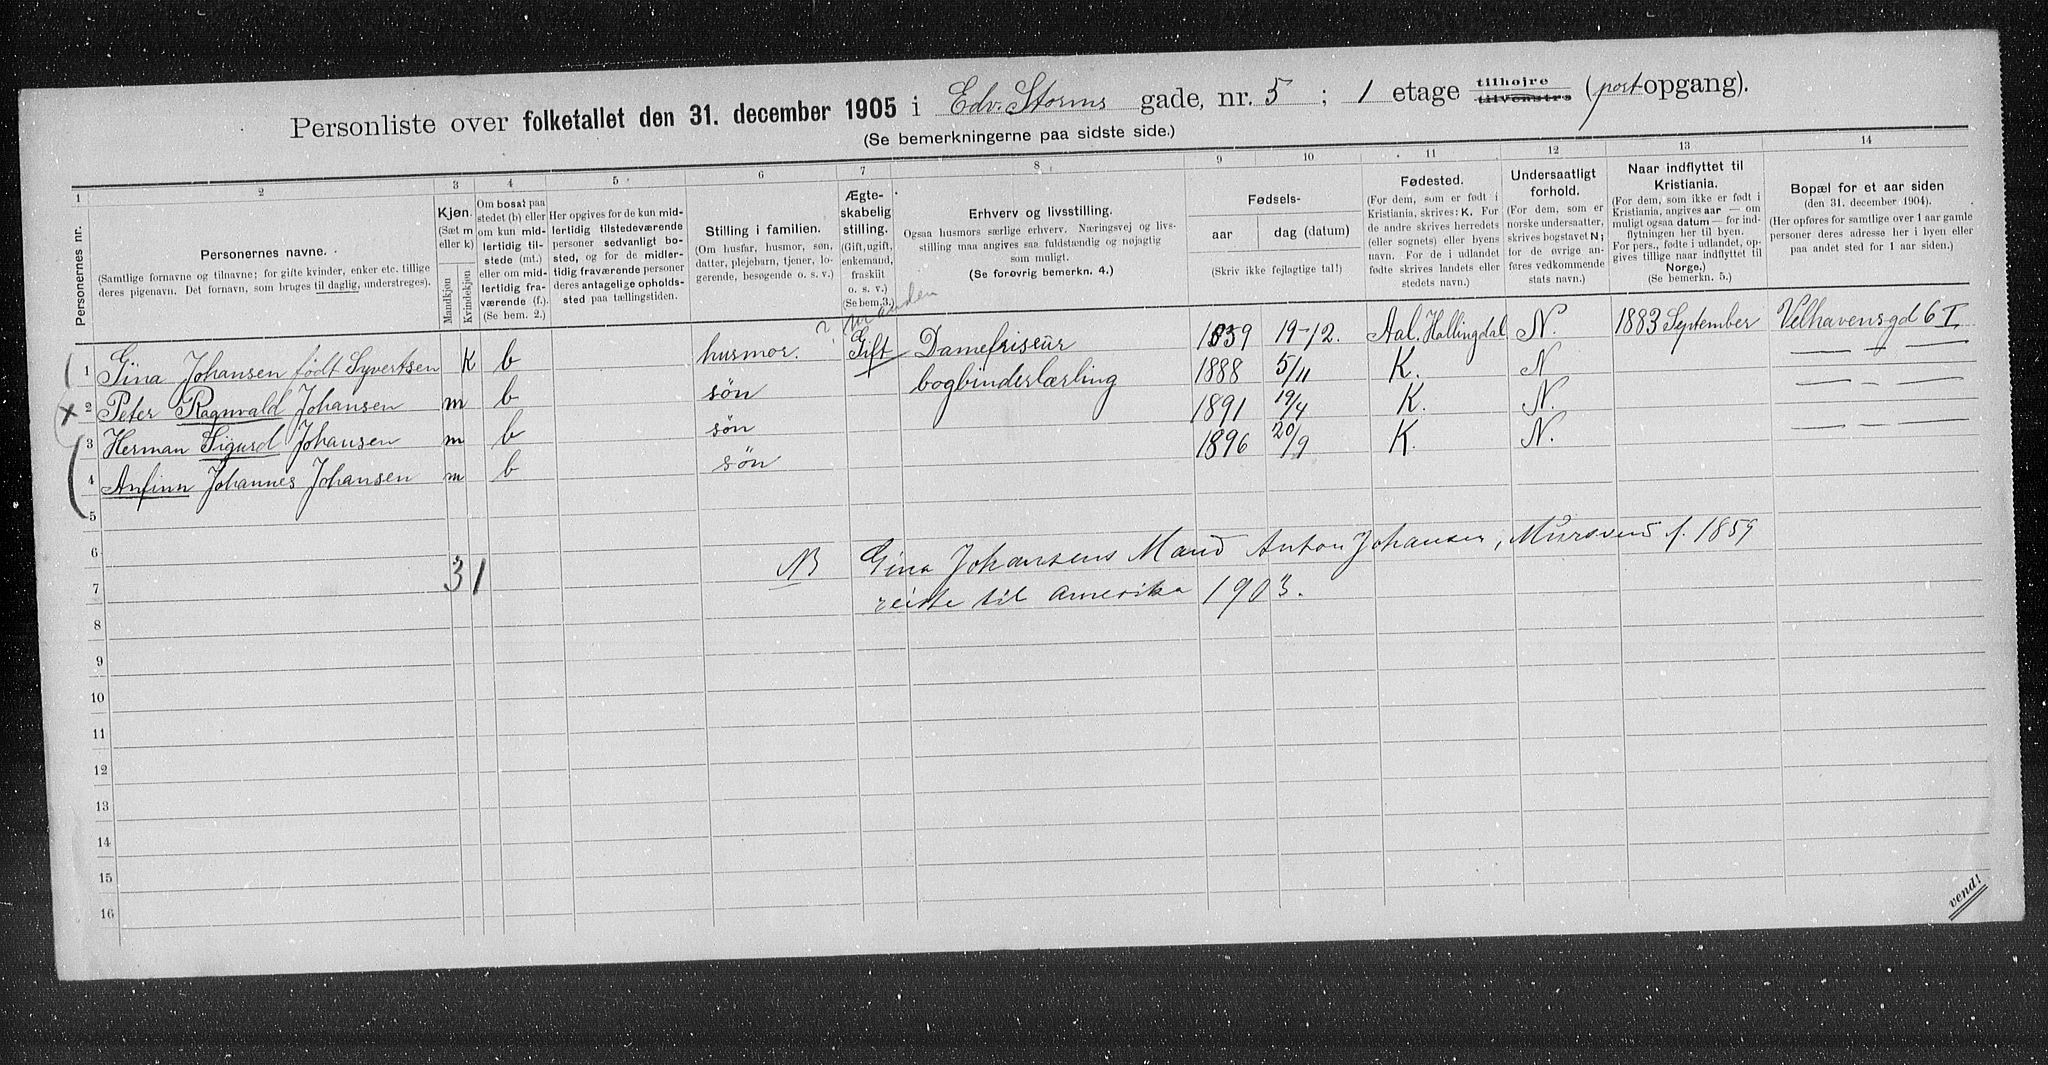 Personliste over folketallet den 31. december 1905 i Edv. Storms gade, nr. 5 ; 1 etage tilhøjre tilvenstre (port-opgang).
(Se bemerkningerne paa sidste side.)
1 2 3 4 5 6 7 8 9 10 11 12 13 14
Personernes nr.
Personernes navne.
(Samtlige fornavne og tilnavne; for gifte kvinder, enker etc. tillige
deres pigenavn. Det fornavn, som bruges til daglig, understreges).
Kjøn.
(Sæt m
eller k)
Mandkjøn
Kvindekjøn.
Om bosat paa
stedet (b) eller
om kun mid-
lertidig til-
stede (mt.)
eller om mid-
lertidig fra-
værende (f.).
(Se bem. 2.)
Her opgives for de kun mid-
lertidig tilstedeværende
personer sedvanligt bo-
sted, og for de midler-
tidig fraværende personer
deres antagelige opholds-
sted paa tællingstiden.
Stilling i familien.
(Om husfar, husmor, søn,
datter, plejebarn, tjener, lo-
gerende, besøgende o. s. v.)
Ægte-
skabelig
stilling.
(Gift, ugift,
enkemand,
fraskilt
o. s. v.)
(Se bem.3.)
Erhverv og livsstilling.
Ogsaa husmors særlige erhverv. Næringsvej og livs-
stilling maa angives saa fuldstændig og nøjagtig
som muligt.
(Se forøvrig bemerkn. 4.)
Fødsels-
aar
dag (datum)
(Skriv ikke fejlagtige tal!)
Fødested.
(For dem, som er født i
Kristiania, skrives: K. For
de andre skrives herredets
(eller sognets) eller byens
navn. For de i udlandet
fødte skrives landets eller
stedets navn.)
Undersaatligt
forhold.
(For dem, som er
norske undersaatter,
skrives bogstavet N;
for de øvrige an-
føres vedkommende
stats navn.)
Naar indflyttet til
Kristiania.
(For dem, som ikke er født i
Kristiania, angives aar — om
muligt ogsaa datum — for ind-
flytningen her til byen.
For pers., fødte i udlandet, op-
gives tillige naar indflyttet til
Norge.)
(Se bemerkn. 5.)
Bopæl for et aar siden
(den 31. december 1904).
(Her opføres for samtlige over 1 aar gamle
personer deres adresse her i byen eller
paa andet sted for 1 aar siden.)
? manden
1 Gina Johansen født Syvertsen K b husmor. Gift Damefriseur 19-12. Aal. Hallingdal N. 1883 September Velhavensgd 6 I
2 Peter Ragnvald Johansen m b søn bogbinderlærling 1888 5/11 K. N — — —
3 Herman Sigurd Johansen m b søn 1891 19/4 K. N. — — —
4 Anfinn Johannes Johansen m b søn 1896 20/9 K. N. — — —
5
6 NB Gina Johansens Mand Anton Johansen, Mursvend f. 1859
7 31 reiste til Amerika 1903.
8
9
10
11
12
13
14
15
16
vend!